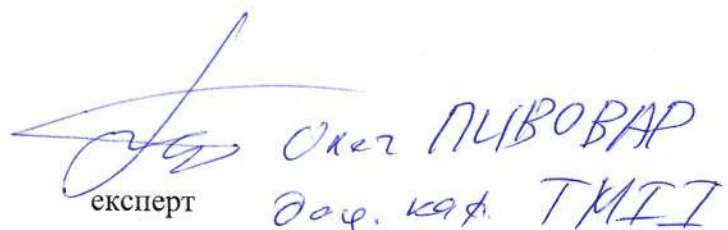 Олег ПИВОВАР
експерт доц. каф. ТМІІ